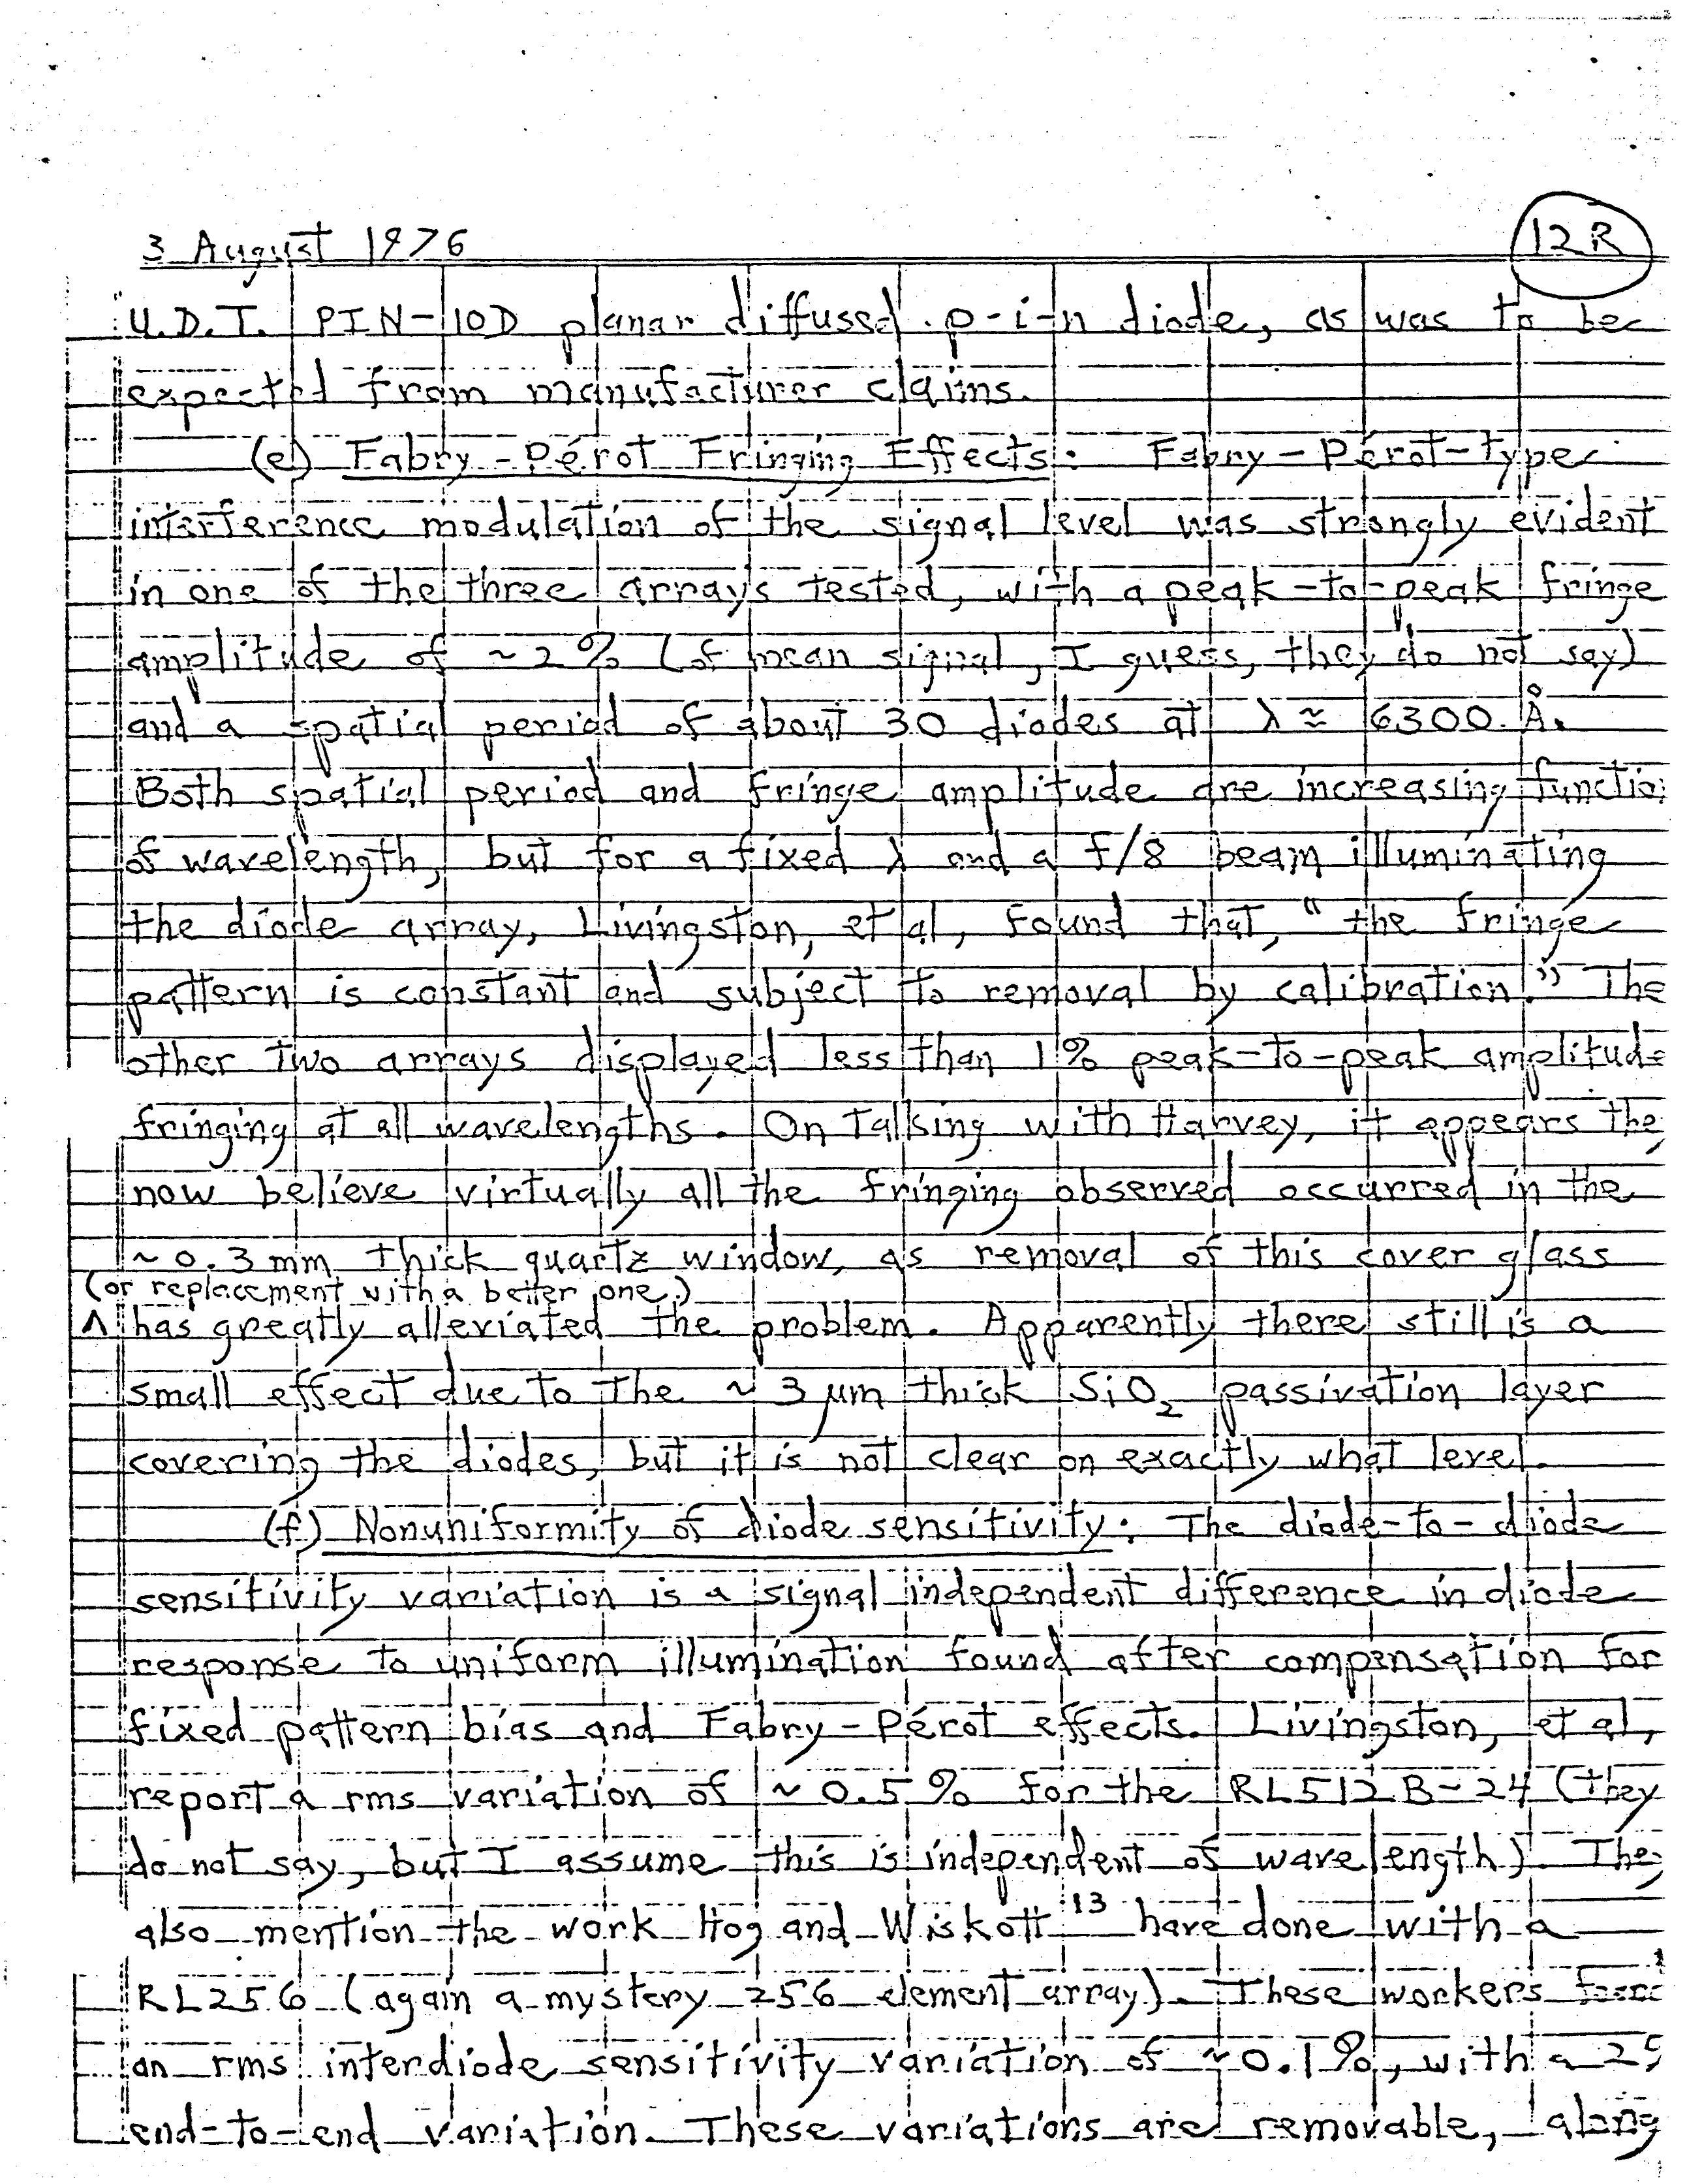 3 August 1976
12R
U.D.T. PIN-10D planar diffused p-i-n diode, as was to be
expected from manufacturer claims.
(e) Fabry-Pérot Fringing Effects: Fabry-Pérot-type
interference modulation of the signal level was strongly evident
in one of the three arrays tested, with a peak-to-peak fringe
amplitude of ~2% (of mean signal, I guess, they do not say)
and a spatial period of about 30 diodes at λ ≈ 6300 Å.
Both spatial period and fringe amplitude are increasing functio
of wavelength, but for a fixed λ and a f/8 beam illuminating
the diode array, Livingston, et al, found that, "the fringe
pattern is constant and subject to removal by calibration." The
other two arrays displayed less than 1% peak-to-peak amplitude
fringing at all wavelengths. On talking with Harvey, it appears the
now believe virtually all the fringing observed occurred in the
~0.3mm thick quartz window, as removal of this cover glass
(or replacement with a better one)
^ has greatly alleviated the problem. Apparently there still is a
small effect due to the ~3 µm thick SiO₂ passivation layer
covering the diodes, but it is not clear on exactly what level.
(f) Nonuniformity of diode sensitivity: The diode-to-diode
sensitivity variation is a signal independent difference in diode
response to uniform illumination found after compensation for
fixed pattern bias and Fabry-Pérot effects. Livingston, et al,
report a rms variation of ~0.5% for the RL512B-24 (they
do not say, but I assume this is independent of wavelength). They
also mention the work Hog and Wiskott¹³ have done with a
RL256 (again a mystery 256 element array). These workers
an rms interdiode sensitivity variation of ~0.1%, with a
end-to-end variation. These variations are removable, along